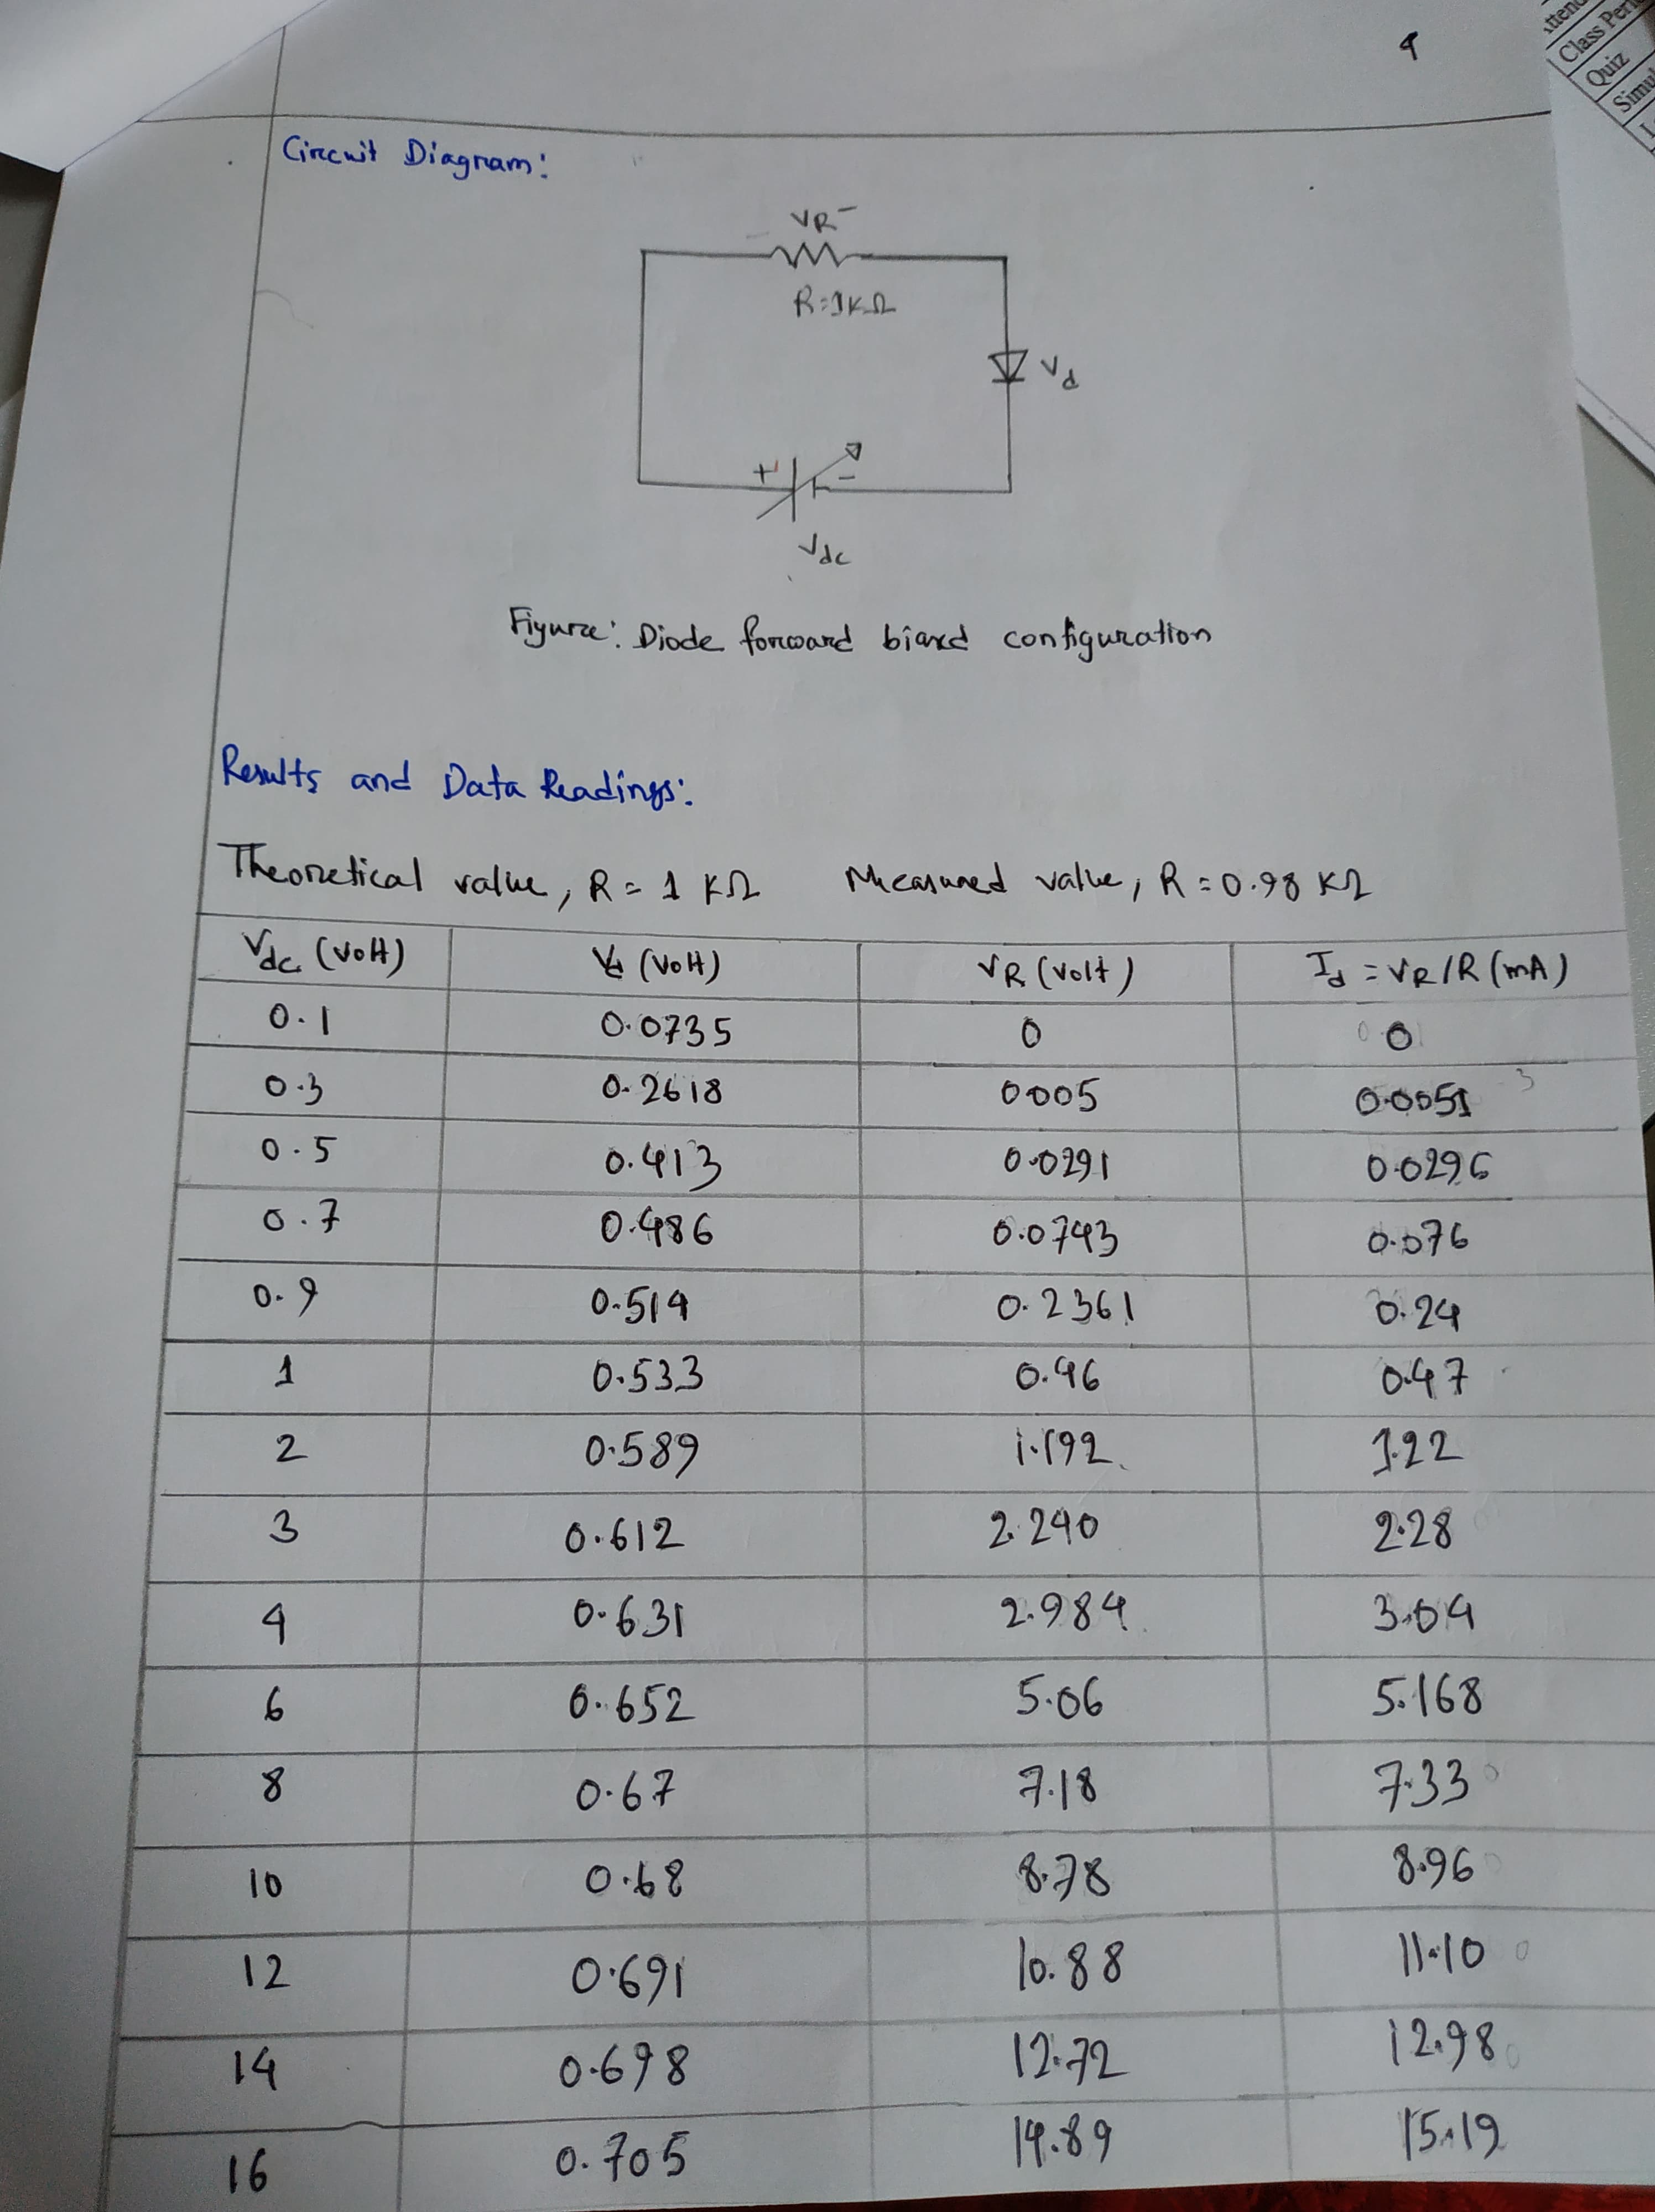 4
Attend
Class Per
Quiz
Simul
Circuit Diagram:
VR -
R=1KΩ
Vd
+ -
Vdc
Figure: Diode forward biaxd configuration
Results and Data Readings:
Theoretical value, R = 1 KΩ Measured value, R = 0.98 KΩ
Vdc (volt) Vd (volt) VR (volt) Id = VR/R (mA)
0.1 0.0735 0 0
0.3 0.2618 0.005 0.0051
0.5 0.413 0.0291 0.0296
0.7 0.486 0.0743 0.076
0.9 0.514 0.2361 0.24
1 0.533 0.46 0.47
2 0.589 1.192 1.22
3 0.612 2.240 2.28
4 0.631 2.984 3.04
6 0.652 5.06 5.168
8 0.67 7.18 7.33
10 0.68 8.78 8.96
12 0.691 10.88 11.10
14 0.698 12.72 12.98
16 0.705 14.89 15.19